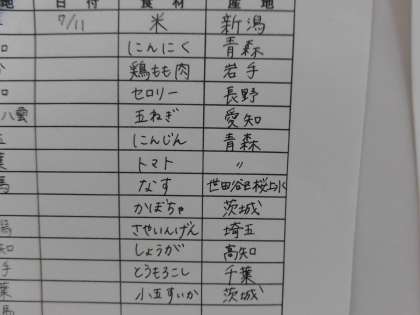 地 日付 食材 産地
7/11 米 新潟
にんにく 青森
鶏もも肉 岩手
セロリー 長野
八雲 玉ねぎ 愛知
にんじん 青森
トマト 〃
なす 世田谷区桜上水
かぼちゃ 茨城
さやいんげん 埼玉
知 しょうが 高知
手 とうもろこし 千葉
葉 小玉すいか 茨城